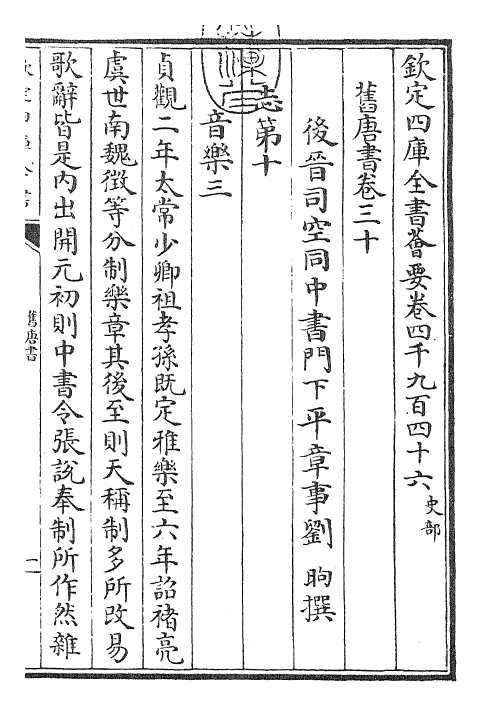 欽定四庫全書薈要卷四千九百四十六 史部
舊唐書卷三十
後晉司空同中書門下平章事劉 昫撰
志第十
音樂三
貞觀二年太常少卿祖孝孫既定雅樂至六年詔褚亮
虞世南魏徴等分制樂章其後至則天稱制多所改易
歌辭皆是内出開元初則中書令張説奉制所作然雜
舊唐書